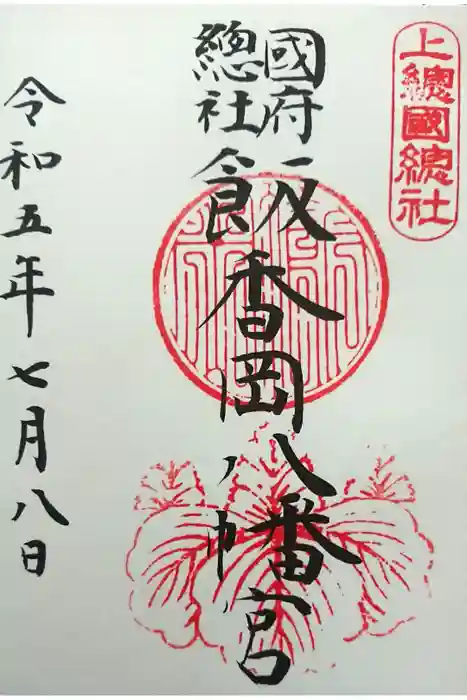 上總國總社
國府
總社
飯香岡八幡宮
令和五年七月八日